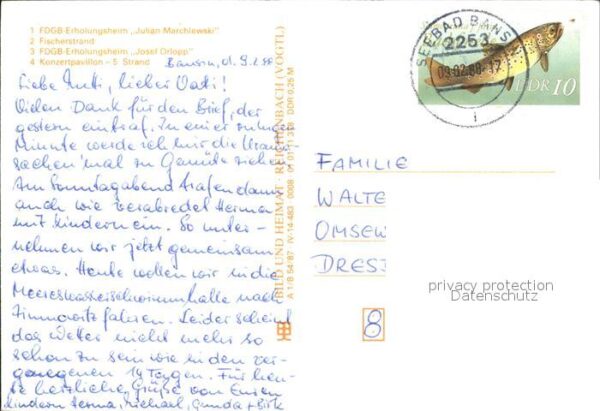 1 FDGB-Erholungsheim „Julian Marchlewski“
2 Fischerstrand
3 FDGB-Erholungsheim „Josef Orlopp“
4 Konzertpavillon – 5 Strand
Bansin, d. 9.2.88
Liebe Mutti, lieber Vati!
Vielen Dank für den Brief, der
gestern eintraf. In einer ruhigen
Minute werde ich mir die
sachen 'mal zu Gemüte ziehen.
Am Sonntagabend trafen dann
auch wie verabredet
mit Kindern ein. So unter-
nehmen wir jetzt gemeinsam
etwas. Heute wollen wir in die
Meereswasserschwimmhalle nach
Zinnowitz fahren. Leider scheint
das Wetter nicht mehr so
schön zu sein wie in den ver-
gangenen 14 Tagen. Für heu-
te herzliche Grüße von Euren
Kindern Michael, Gunda + Birk
BILD UND HEIMAT · REICHENBACH (VOGTL)
A 1/B 54/87 IV-14-483 01 01 11 318 DDR 0,25 M
SEEBAD BANSIN
2253
09.02.88-17
i
DDR 10
FAMILIE
WALTE
OMSEW
DRES
8
privacy protection
Datenschutz